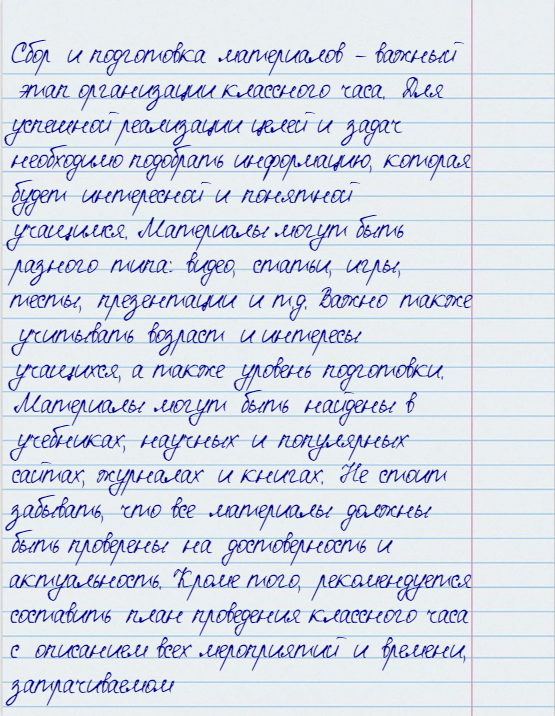 Сбор и подготовка материалов – важный
этап организации классного часа. Для
успешной реализации целей и задач
необходимо подобрать информацию, которая
будет интересной и понятной
учащимся. Материалы могут быть
разного типа: видео, статьи, игры,
тесты, презентации и т.д. Важно также
учитывать возраст и интересы
учащихся, а также уровень подготовки.
Материалы могут быть найдены в
учебниках, научных и популярных
сайтах, журналах и книгах. Не стоит
забывать, что все материалы должны
быть проверены на достоверность и
актуальность. Кроме того, рекомендуется
составить план проведения классного часа
с описанием всех мероприятий и времени,
затрачиваемом